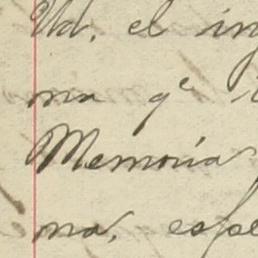 Ud. el in
ma qe
Memoria
na, espe